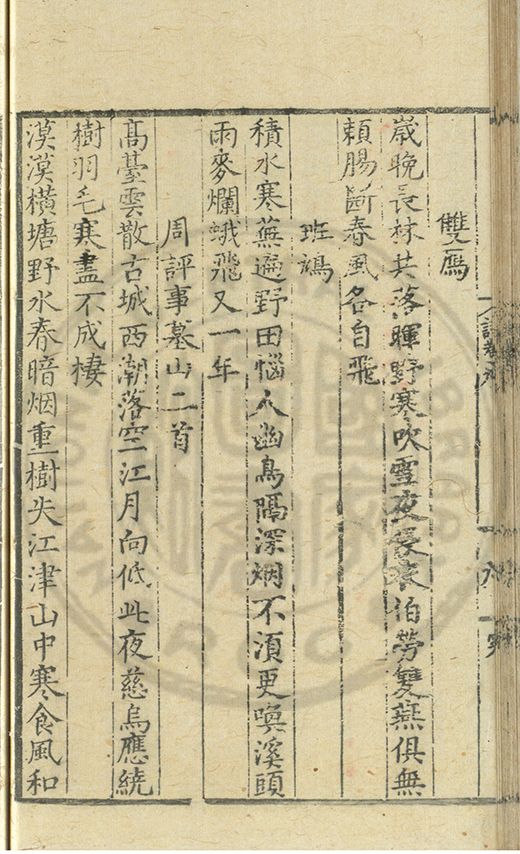 雙鴈
歲晚長林共落暉野寒吹雪夜伯勞雙燕俱無
賴腸斷春風各自飛
班鳩
積水寒蕪遍野田惱人幽鳥隔深烟不湏更喚溪頭
雨麥爛蛾飛又一年
周評事墓山二首
髙臺雲散古城西潮落空江月向低此夜慈烏應繞
樹羽毛寒盡不成棲
漠漠橫塘野水春暗烟重樹失江津山中寒食風和